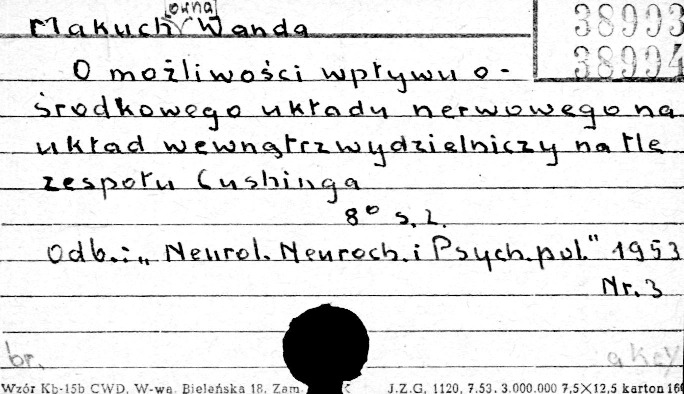 owna
Makuch Wanda
38993
38994
O możliwości wpływu o-
środkowego układu nerwowego na
układ wewnątrzwydzielniczy na tle
zespołu Cushinga
8° s. 2.
Odb.: „Neurol. Neuroch. i Psych. pol." 1953
Nr. 3
br. akcy
Wzór Kb-15b CWD, W-wa, Bieleńska 18, Zam. K J.Z.G. 1120. 7.53. 3.000.000 7,5×12,5 karton 160